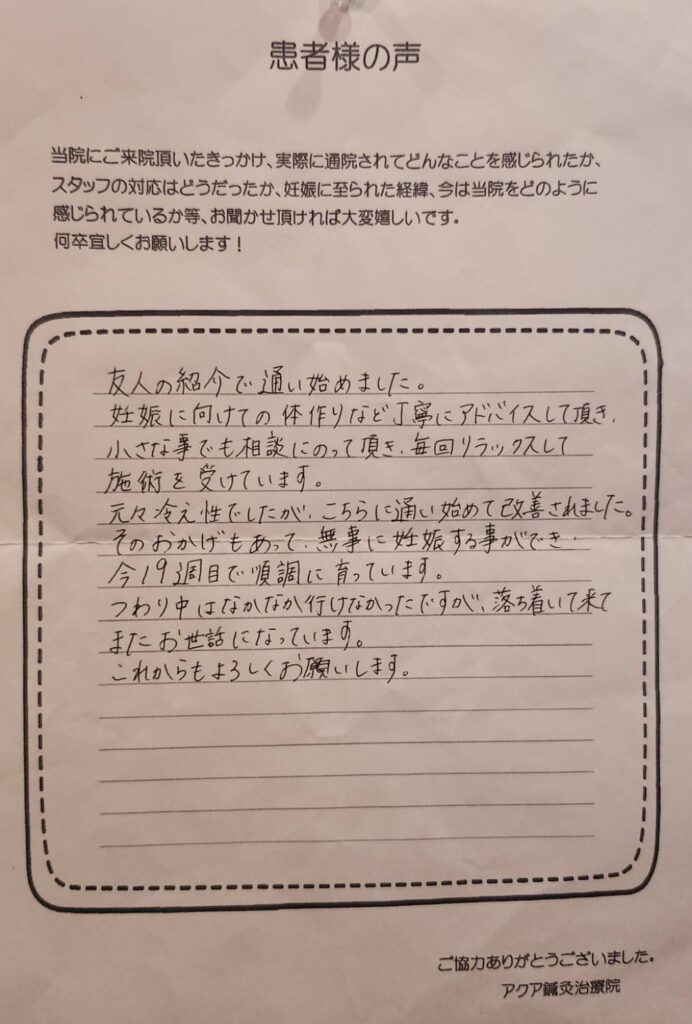 患者様の声
当院にご来院頂いたきっかけ、実際に通院されてどんなことを感じられたか、
スタッフの対応はどうだったか、妊娠に至られた経緯、今は当院をどのように
感じられているか等、お聞かせ頂ければ大変嬉しいです。
何卒宜しくお願いします！
友人の紹介で通い始めました。
妊娠に向けての体作りなど丁寧にアドバイスして頂き、
小さな事でも相談にのって頂き、毎回リラックスして
施術を受けています。
元々冷え性でしたが、こちらに通い始めて改善されました。
そのおかげもあって、無事に妊娠する事ができ、
今19週目で順調に育っています。
つわり中はなかなか行けなかったですが、落ち着いて来て
またお世話になっています。
これからもよろしくお願いします。
ご協力ありがとうございました。
アクア鍼灸治療院